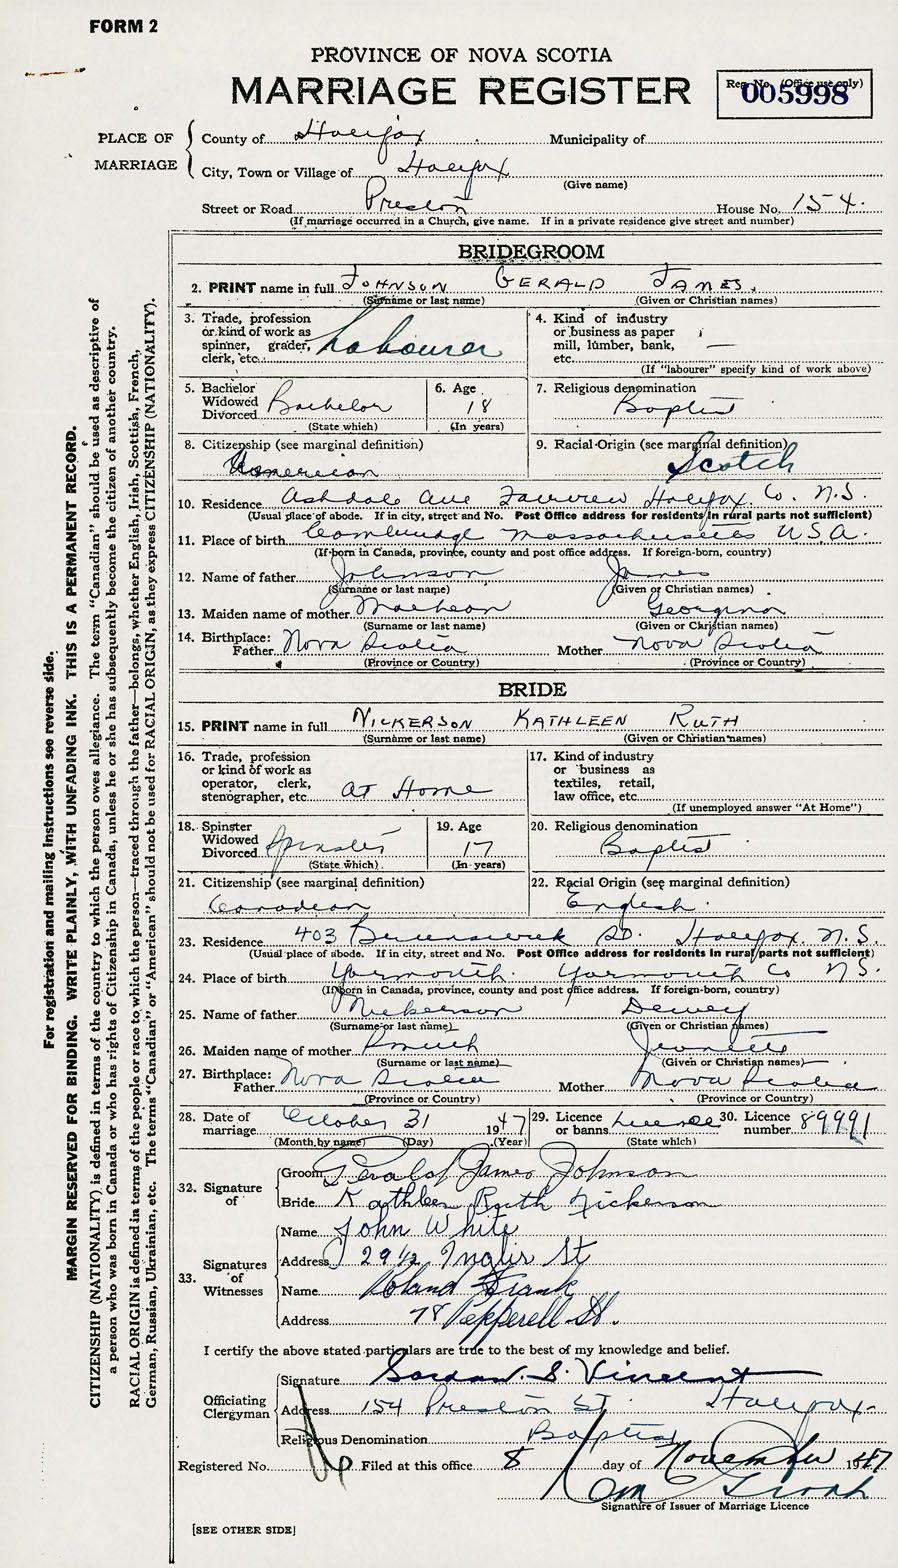 FORM 2
PROVINCE OF NOVA SCOTIA
MARRIAGE REGISTER
Reg. No. (Office use only)
005998
PLACE OF MARRIAGE
County of Halifax Municipality of
City, Town or Village of Halifax
(Give name)
Street or Road Preston House No. 154.
(If marriage occurred in a Church, give name. If in a private residence give street and number)
BRIDEGROOM
2. PRINT name in full JOHNSON GERALD JAMES.
(Surname or last name) (Given or Christian names)
3. Trade, profession or kind of work as spinner, grader, clerk, etc. Labourer
4. Kind of industry or business as paper mill, lumber, bank, etc. —
(If "labourer" specify kind of work above)
5. Bachelor Widowed Divorced Bachelor
(State which)
6. Age 18
(In years)
7. Religious denomination Baptist
8. Citizenship (see marginal definition) American
9. Racial Origin (see marginal definition) Scotch
10. Residence Ashdale Ave Fairview Halifax Co. N.S.
(Usual place of abode. If in city, street and No. Post Office address for residents in rural parts not sufficient)
11. Place of birth Cambridge Massachusetts U.S.A.
(If born in Canada, province, county and post office address. If foreign-born, country)
12. Name of father Johnson James
(Surname or last name) (Given or Christian names)
13. Maiden name of mother Georgina
(Surname or last name) (Given or Christian names)
14. Birthplace: Father Nova Scotia Mother Nova Scotia
(Province or Country) (Province or Country)
BRIDE
15. PRINT name in full NICKERSON KATHLEEN RUTH
(Surname or last name) (Given or Christian names)
16. Trade, profession or kind of work as operator, clerk, stenographer, etc. At Home
17. Kind of industry or business as textiles, retail, law office, etc.
(If unemployed answer "At Home")
18. Spinster Widowed Divorced Spinster
(State which)
19. Age 17
(In years)
20. Religious denomination Baptist
21. Citizenship (see marginal definition) Canadean
22. Racial Origin (see marginal definition) English.
23. Residence 403 Brunswick St. Halifax. N.S.
(Usual place of abode. If in city, street and No. Post Office address for residents in rural parts not sufficient)
24. Place of birth Yarmouth. Yarmouth Co N.S.
(If born in Canada, province, county and post office address. If foreign-born, country)
25. Name of father Nickerson Dewey
(Surname or last name) (Given or Christian names)
26. Maiden name of mother Jeanette
(Surname or last name) (Given or Christian names)
27. Birthplace: Father Nova Scotia Mother Nova Scotia
(Province or Country) (Province or Country)
28. Date of marriage October 31 1947
(Month by name) (Day) (Year)
29. Licence or banns Licence
(State which)
30. Licence number 89991
32. Signature of
Groom Gerald James Johnson
Bride Kathleen Ruth Nickerson
33. Signatures of Witnesses
Name John White
Address 29 1/2 Inglis St
Name Roland Frank
Address 78 Pepperell St.
I certify the above stated particulars are true to the best of my knowledge and belief.
Officiating Clergyman
Signature Gordon S. Vincent
Address 154 Preston St. Halifax
Religious Denomination Baptist
Registered No. Filed at this office 8 day of November 1947
Signature of Issuer of Marriage Licence
[SEE OTHER SIDE]
For registration and mailing instructions see reverse side.
MARGIN RESERVED FOR BINDING. WRITE PLAINLY, WITH UNFADING INK. THIS IS A PERMANENT RECORD.
CITIZENSHIP (NATIONALITY) is defined in terms of the country to which the person owes allegiance. The term "Canadian" should be used as descriptive of
a person who was born in Canada or who has rights of Citizenship in Canada, unless he or she has subsequently become the citizen of another country.
RACIAL ORIGIN is defined in terms of the people or race to which the person—traced through the father—belongs, whether English, Irish, Scottish, French,
German, Russian, Ukrainian, etc. The terms "Canadian" or "American" should not be used for RACIAL ORIGIN, as they express CITIZENSHIP (NATIONALITY).